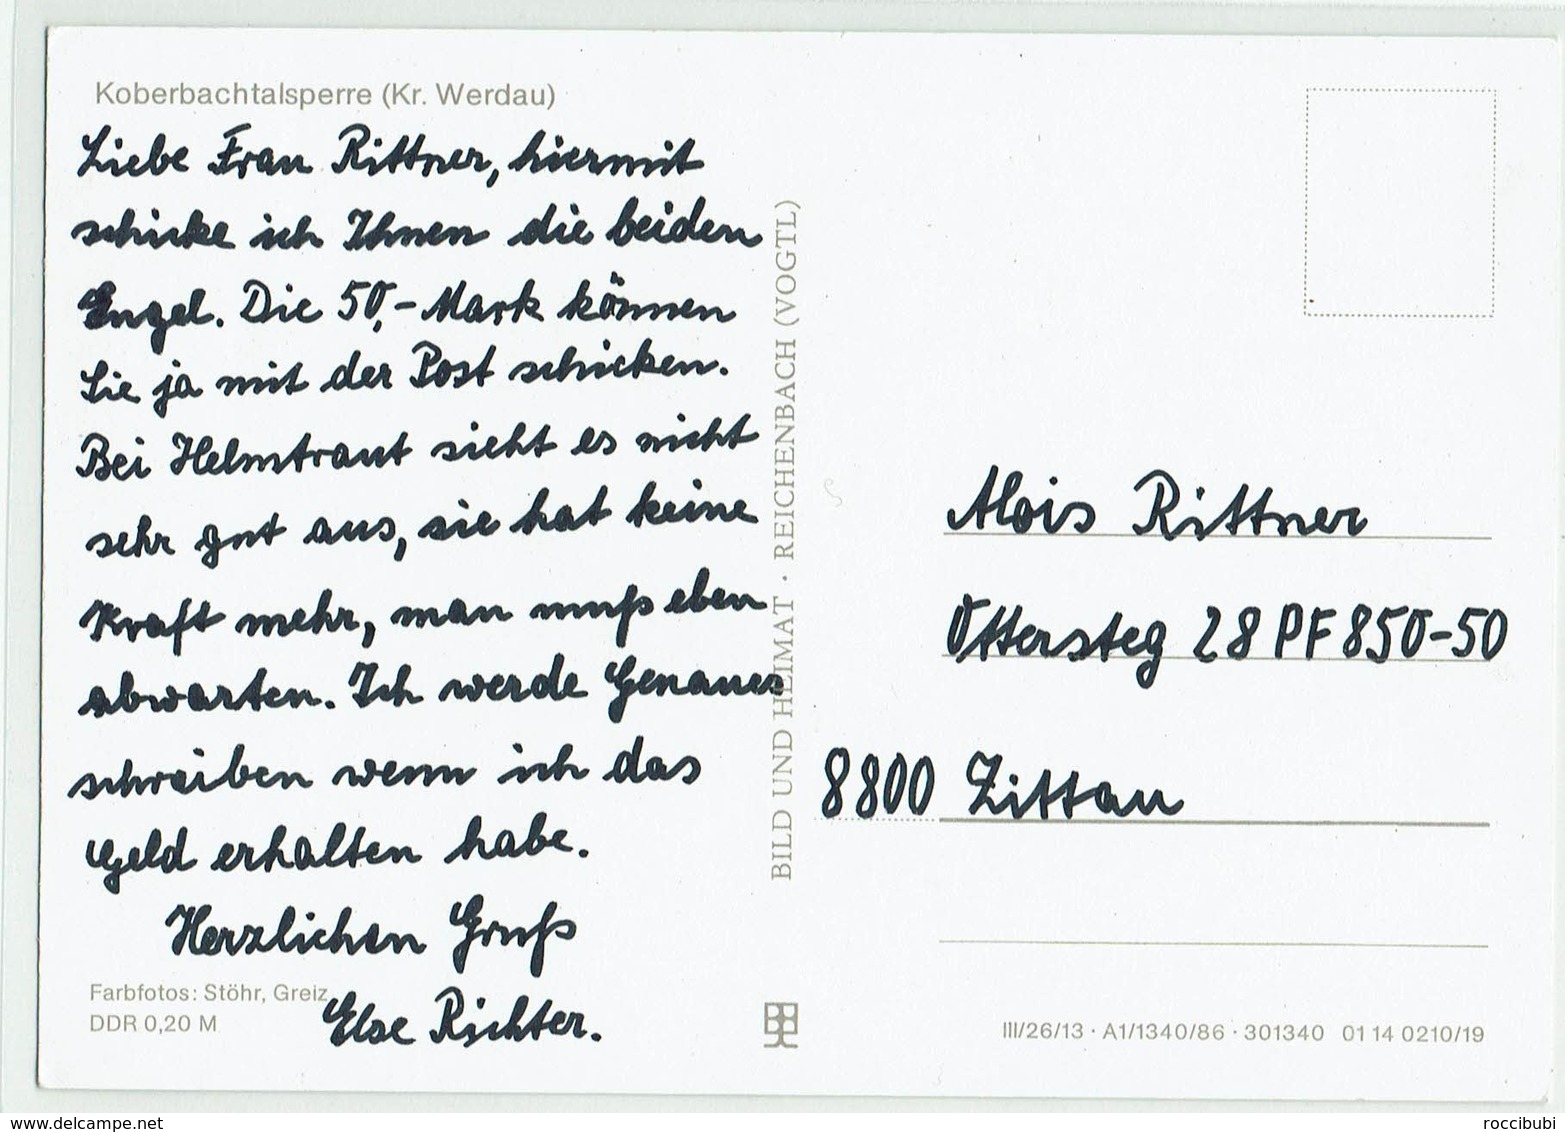 Koberbachtalsperre (Kr. Werdau)
Liebe Frau Rittner, hiermit
schicke ich Ihnen die beiden
Engel. Die 50,- Mark können
Sie ja mit der Post schicken.
Bei Helmtraut sieht es nicht
sehr gut aus, sie hat keine
Kraft mehr, man muß eben
abwarten. Ich werde Genaues
schreiben wenn ich das
Geld erhalten habe.
Herzlichen Gruß
Else Richter.
Farbfotos: Stöhr, Greiz
DDR 0,20 M
BILD UND HEIMAT · REICHENBACH (VOGTL)
Alois Rittner
Ottersteg 28 PF 850-50
8800 Zittau
III/26/13 · A1/1340/86 · 301340 01 14 0210/19
www.delcampe.net
roccibubi